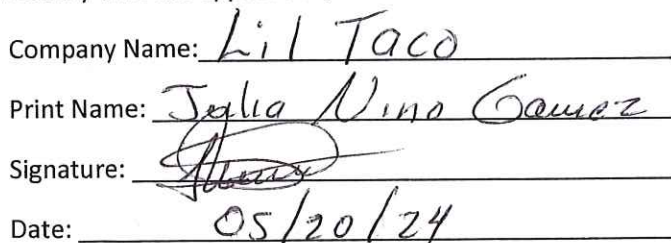 Company Name: Lil Taco
Print Name: Julia Nino Gamez
Signature:
Date: 05/20/24